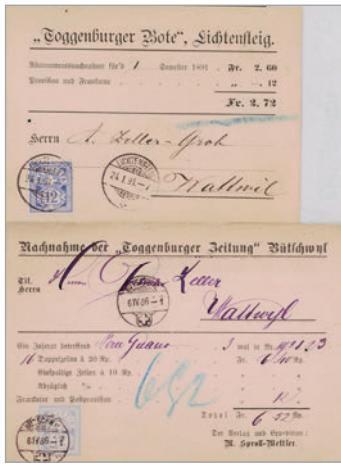 „Toggenburger Bote“, Lichtensteig.
Abonnementsnachnahme für's 1 Semester 1891 . Fr. 2. 60
Provision und Frankatur . . . „ —. 12
Fr. 2. 72
Herrn A. Zeller-Groh
Wattwil
12
24. I. 91.
Nachnahme der „Toggenburger Zeitung“ Bütschwyl
Tit.
Herrn Zeller
Wattwyl
Ein Inserat betreffend Guano 3 mal in Nr. 23
16 Doppelzeilen à 20 Rp. Fr. 6 40 Rp.
Einspaltige Zeilen à 10 Rp.
Abzüglich %
Frankatur und Postprovision 12
Total Fr. 6. 52 Rp.
652
Der Verlag und Expedition:
M. Sproll-Mettler.